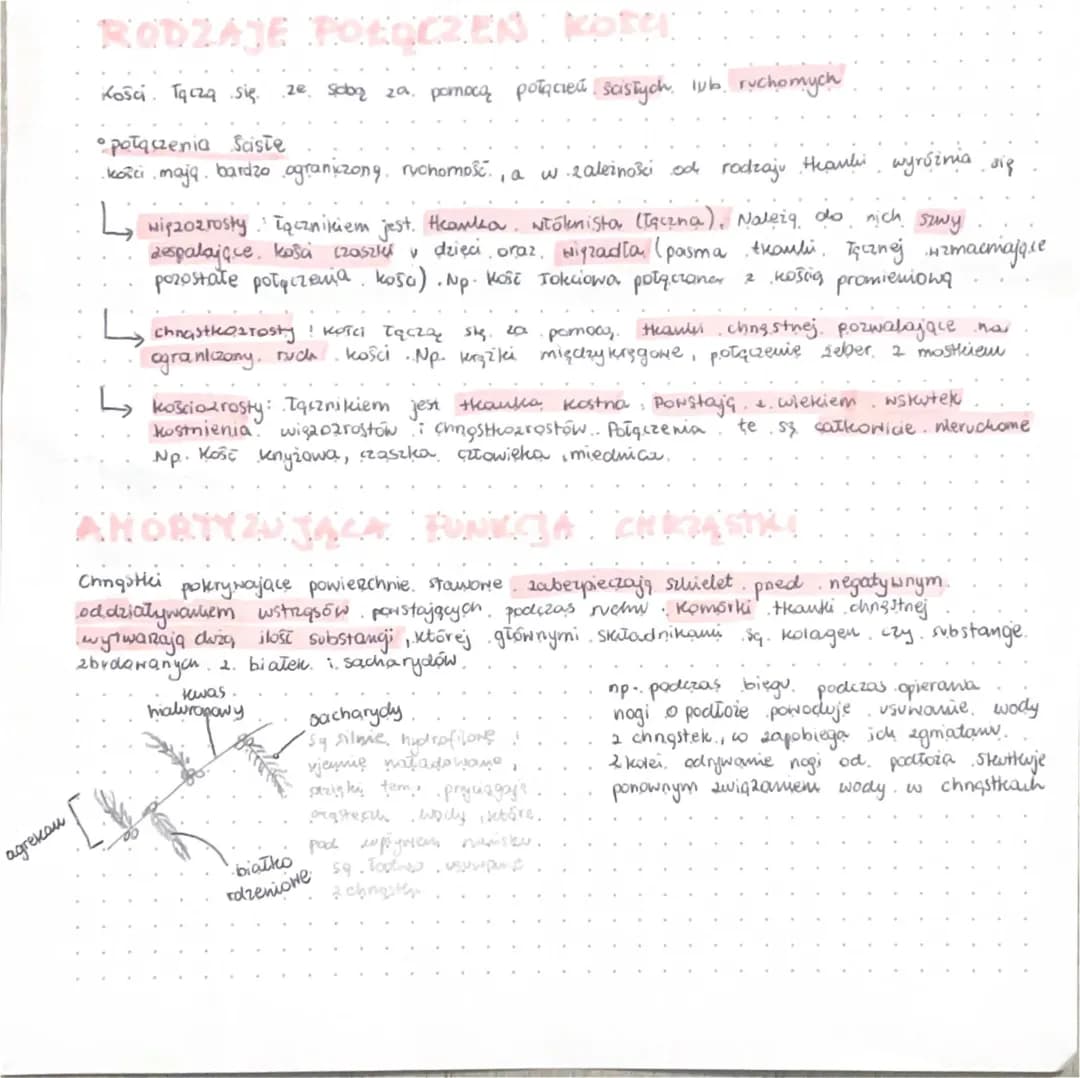 RODZAJE POŁĄCZEŃ KOŚCI
Kości łączą się ze sobą za pomocą połączeń ścisłych lub ruchomych
• połączenia ścisłe
kości mają bardzo ograniczoną ruchomość, a w zależności od rodzaju tkanki wyróżnia się
↳ więzozrosty: łącznikiem jest tkanka włóknista (łączna). Należą do nich szwy
zespalające kości czaszki u dzieci oraz więzadła (pasma tkanki łącznej wzmacniające
pozostałe połączenia kości). Np. kość łokciowa połączona z kością promieniową
↳ chrząstkozrosty: kości łączą się za pomocą tkanki chrzęstnej pozwalające na
ograniczony ruch kości. Np. krążki międzykręgowe, połączenie żeber z mostkiem
↳ kościozrosty: łącznikiem jest tkanka kostna. Powstają z wiekiem wskutek
kostnienia więzozrostów i chrząstkozrostów. Połączenia te są całkowicie nieruchome
Np. kość krzyżowa, czaszka człowieka, miednica.
AMORTYZUJĄCA FUNKCJA CHRZĄSTKI
Chrząstki pokrywające powierzchnie stawowe zabezpieczają szkielet przed negatywnym
oddziaływaniem wstrząsów powstających podczas ruchu. Komórki tkanki chrzęstnej
wytwarzają dużą ilość substancji, której głównymi składnikami są kolagen czy substancje
zbudowanych z białek i sacharydów.
kwas
hialuronowy
sacharydy
są silnie hydrofilowe i
ujemnie naładowane,
dzięki temu przyciągają
cząsteczki wody, które
pod wpływem nacisku
są łatwo usuwane
z chrząstek
agrekan
białko
rdzeniowe
np. podczas biegu podczas opierania
nogi o podłoże powoduje usuwanie wody
z chrząstek, co zapobiega ich zgniataniu.
Z kolei odrywanie nogi od podłoża skutkuje
ponownym związaniem wody w chrząstkach